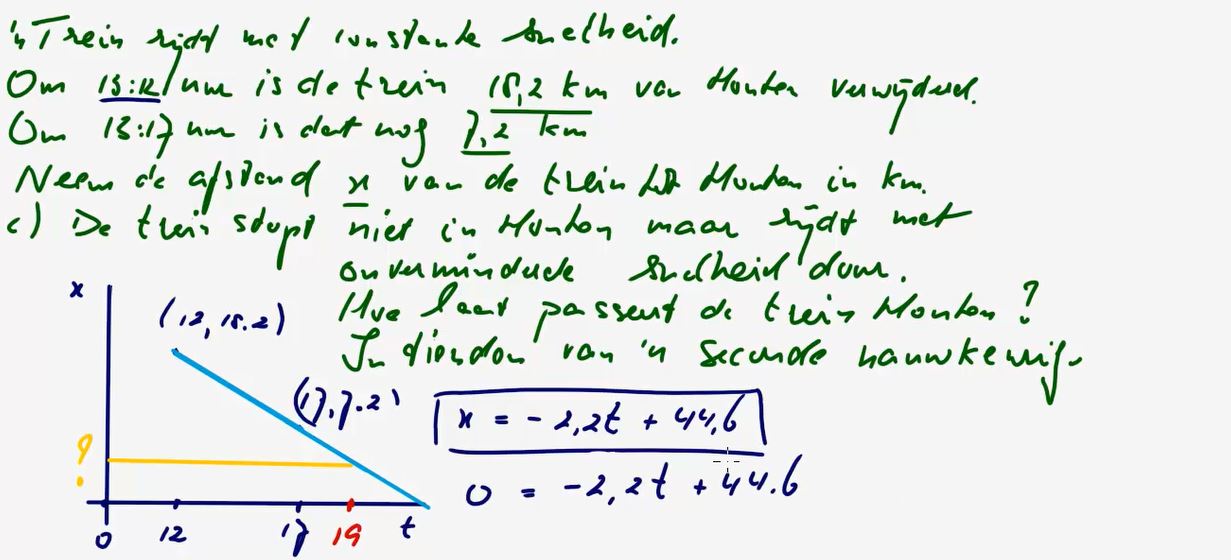 'n Trein rijdt met constante snelheid.
Om 13:12 uur is de trein 18,2 km van Houten verwijderd.
Om 13:17 uur is dat nog 7,2 km
Neem de afstand x van de trein tot Houten in km.
c) De trein stopt niet in Houten maar rijdt met
onverminderde snelheid door.
Hoe laat passeert de trein Houten?
In tienden van 'n seconde nauwkeurig.
x
(12, 18.2)
(17, 7.2)
x = -2,2t + 44,6
?
0 = -2,2t + 44.6
0 12 17 19 t